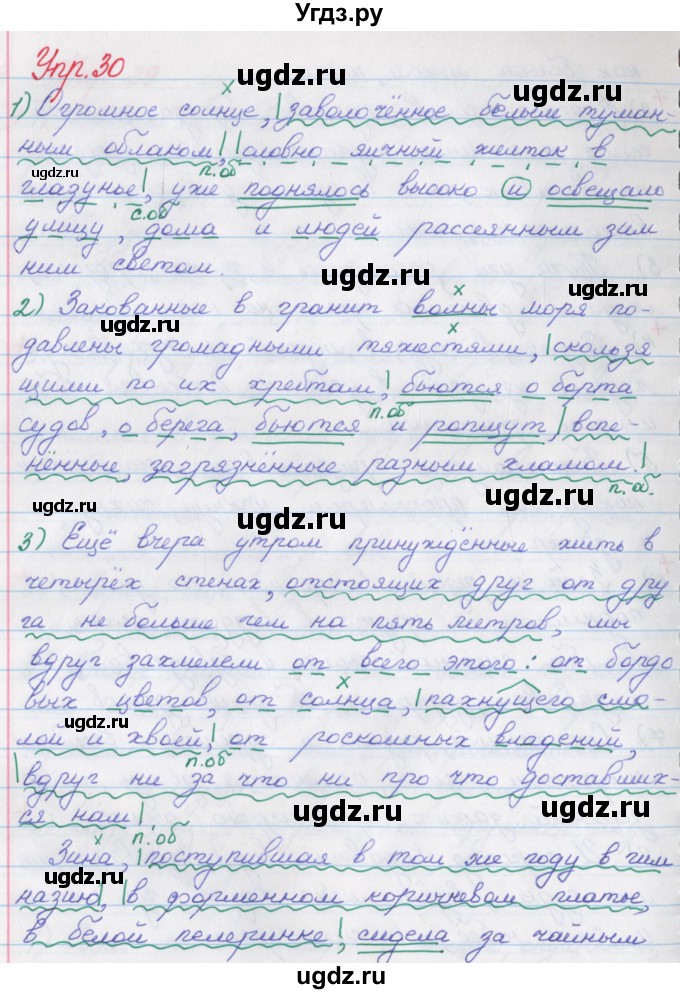 Угдз.ру
Упр.30
ugdz.ru
ugdz.ru
х
1) Огромное солнце, заволочённое белым туман-
ным облаком, словно яичный желток в
п.об
глазунье, уже поднялось высоко и освещало
с.об
улицу, дома и людей рассеянным зим
ним светом.
ugdz.ru
ugdz.ru
х
2) Закованные в гранит волны моря по-
ugdz.ru
х
давлены громадными тяжестями, скользя
щими по их хребтам, бьются о борта
п.об
ugdz.ru
судов, о берега, бьются и ропщут, вспе-
нённые, загрязнённые разным хламом.
п.об.
ugdz.ru
ugdz.ru
ugdz.ru
3) Ещё вчера утром принуждённые жить в
четырёх стенах, отстоящих друг от дру
га не больше чем на пять метров, мы
вдруг захмелели от всего этого: от бордо
ugdz.ru
х
вых цветов, от солнца, пахнущего смо
ugdz.ru
лой и хвоей, от роскошных владений,
п.об
вдруг ни за что ни про что доставших-
ugdz.ru
ся нам.
х
п.об
Зина, поступившая в том же году в гим
ugdz.ru
назию, в форменном коричневом платье,
ugdz.ru
в белой пелеринке, сидела за чайным
ugdz.ru